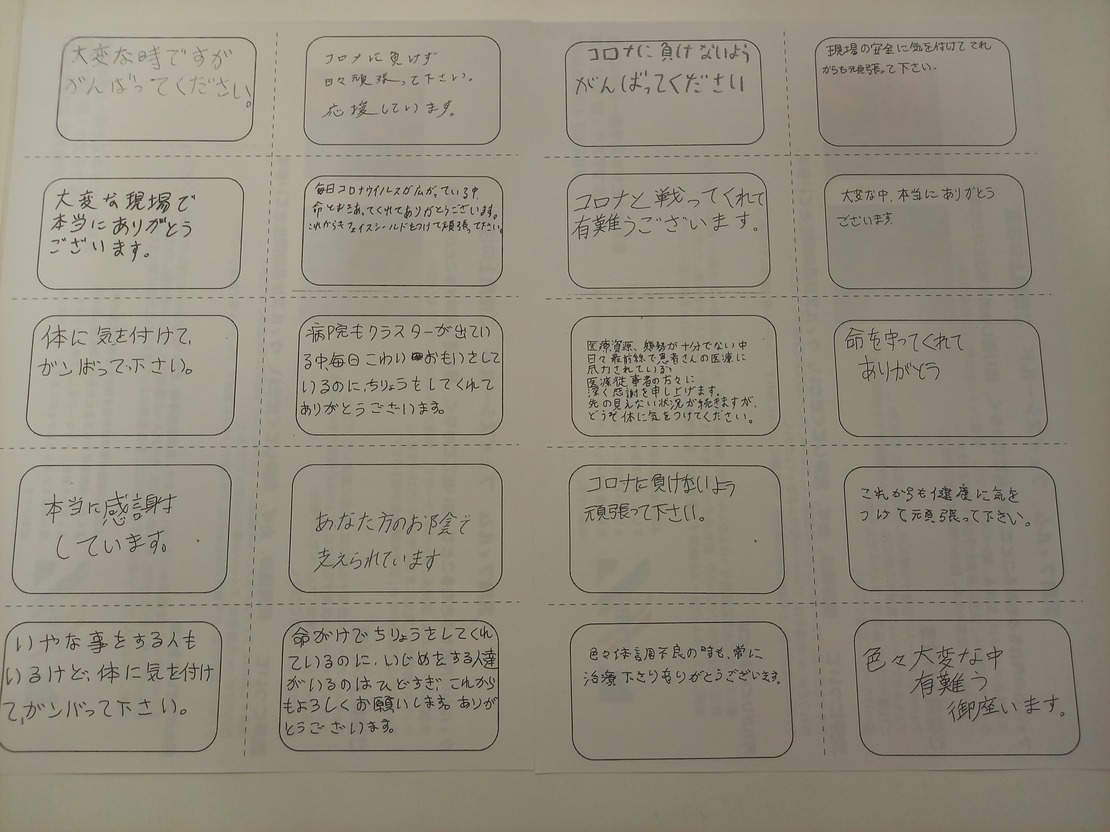 大変な時ですが
がんばってください。
コロナに負けず
日々頑張って下さい。
応援しています。
コロナに負けないよう
がんばってください
現場の安全に気を付けてこれ
からも頑張って下さい。
大変な現場で
本当にありがとう
ございます。
毎日コロナウイルスが広がっている中、
命と向きあってくれてありがとうございます。
これからもフェイスシールドをつけて頑張って下さい。
コロナと戦ってくれて
有難うございます。
大変な中、本当にありがとう
ございます。
体に気を付けて、
ガンばって下さい。
病院もクラスターが出てい
る中毎日こわいおもいをして
いるのに、ちりょうをしてくれて
ありがとうございます。
医療資源、態勢が十分でない中
日々最前線で患者さんの医療に
尽力されている
医療従事者の方々に
深く感謝を申し上げます。
先の見えない状況が続きますが、
どうぞ体に気をつけてください。
命を守ってくれて
ありがとう
本当に感謝
しています。
あなた方のお陰で
支えられています
コロナに負けないよう
頑張って下さい。
これからも健康に気を
つけて頑張って下さい。
いやな事をする人も
いるけど、体に気を付け
て、ガンバって下さい。
命がけでちりょうをしてくれ
ているのに、いじめをする人達
がいるのはひどすぎ、これから
もよろしくお願いします。ありが
とうございます。
色々体調不良の時も、常に
治療下さりありがとうございます。
色々大変な中
有難う
御座います。